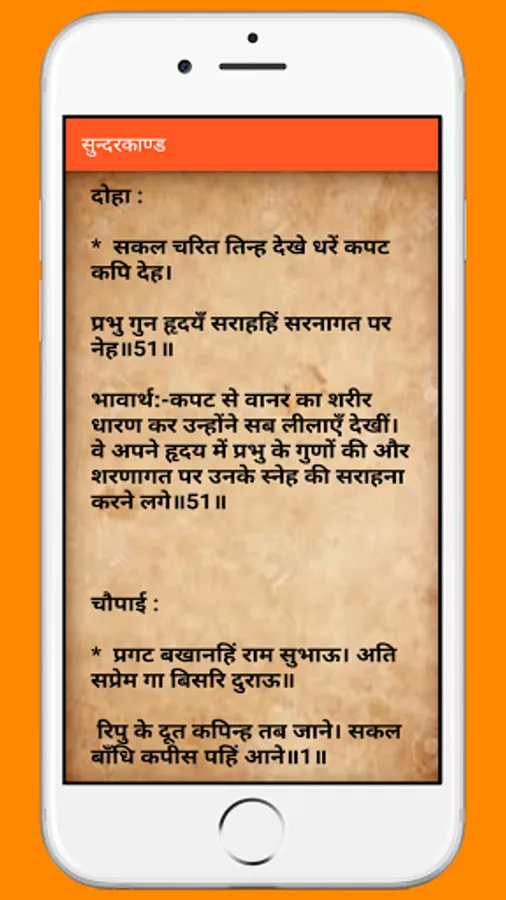 सुन्दरकाण्ड
दोहा :
* सकल चरित तिन्ह देखे धरें कपट
कपि देह।
प्रभु गुन हृदयँ सराहहिं सरनागत पर
नेह॥51॥
भावार्थ:-कपट से वानर का शरीर
धारण कर उन्होंने सब लीलाएँ देखीं।
वे अपने हृदय में प्रभु के गुणों की और
शरणागत पर उनके स्नेह की सराहना
करने लगे॥51॥
चौपाई :
* प्रगट बखानहिं राम सुभाऊ। अति
सप्रेम गा बिसरि दुराऊ॥
रिपु के दूत कपिन्ह तब जाने। सकल
बाँधि कपीस पहिं आने॥1॥